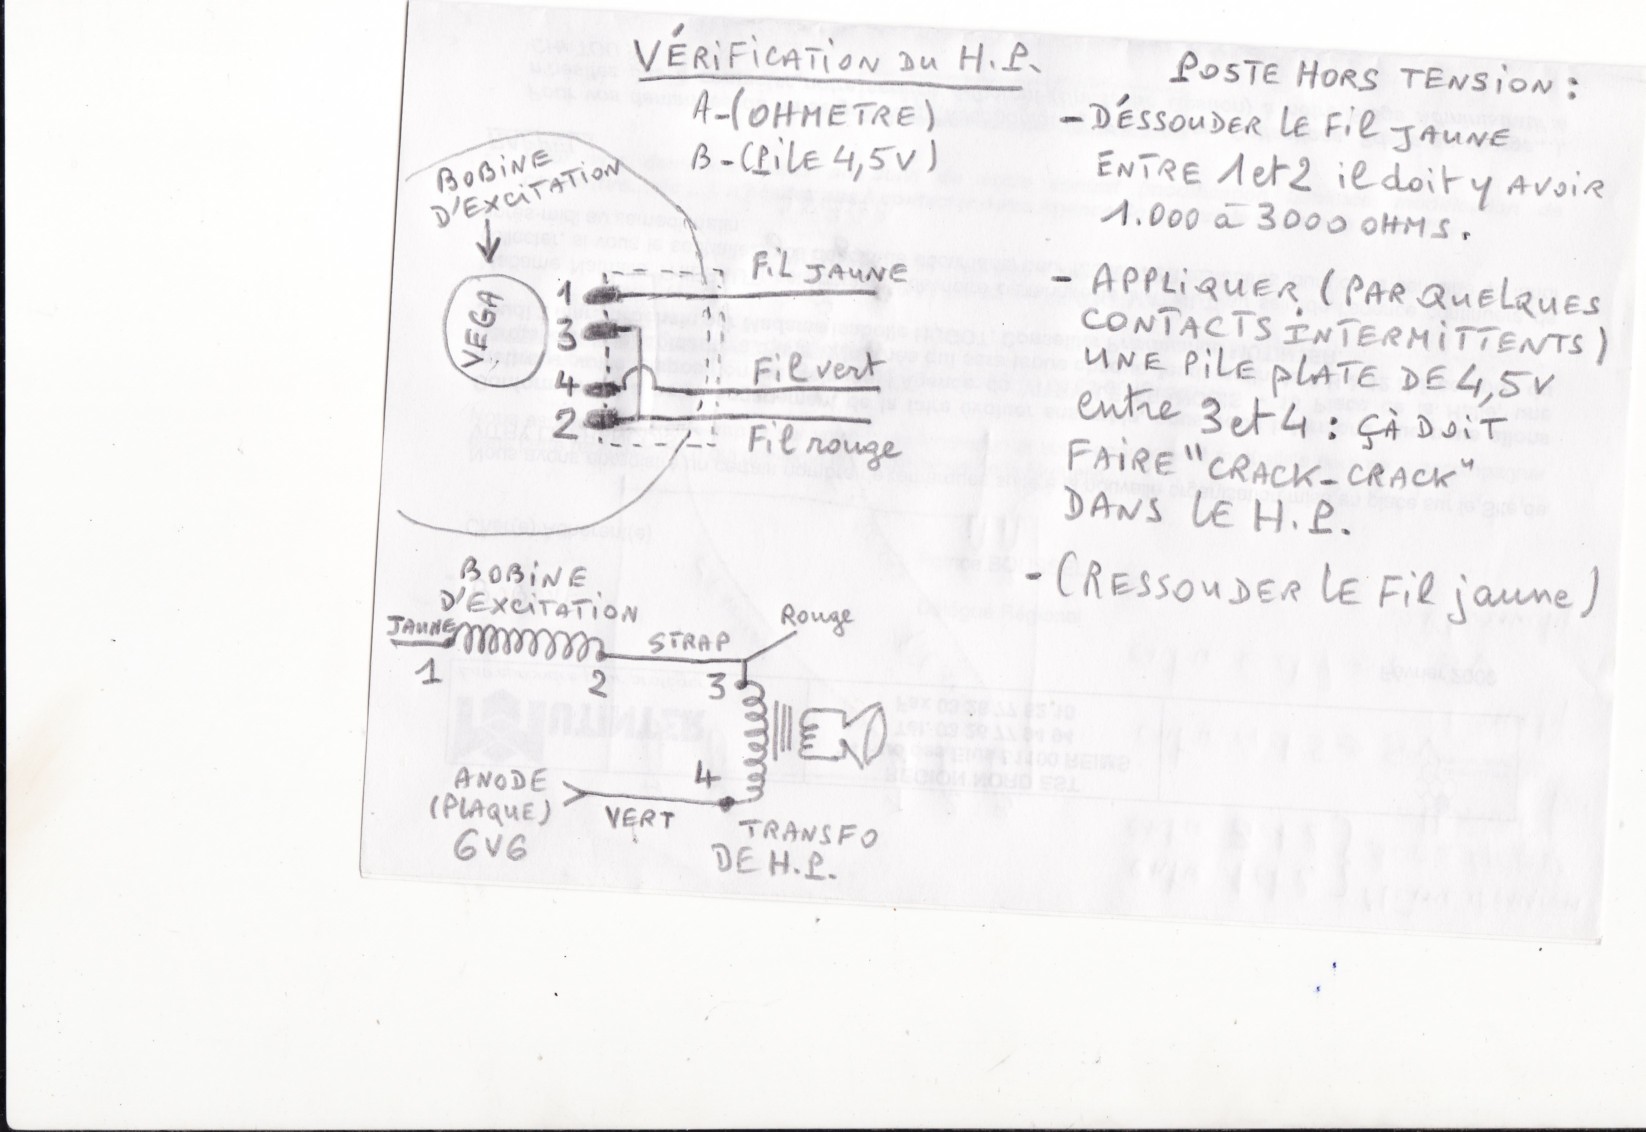 VÉRIFICATION DU H.P.
A-(OHMETRE)
B-(PILE 4,5V)
BOBINE
D'EXCITATION
VEGA
1
3
4
2
FIL JAUNE
Fil vert
Fil rouge
POSTE HORS TENSION :
- DÉSSOUDER LE FIL JAUNE
ENTRE 1 et 2 il doit y AVOIR
1.000 à 3000 OHMS.
- APPLIQUER (PAR QUELQUES
CONTACTS INTERMITTENTS)
UNE PILE PLATE DE 4,5V
entre 3 et 4 : ÇÀ DOIT
FAIRE "CRACK-CRACK"
DANS LE H.P.
- (RESSOUDER LE Fil jaune)
BOBINE
D'EXCITATION
JAUNE
STRAP
Rouge
1
2
3
4
ANODE
(PLAQUE)
6V6
VERT
TRANSFO
DE H.P.